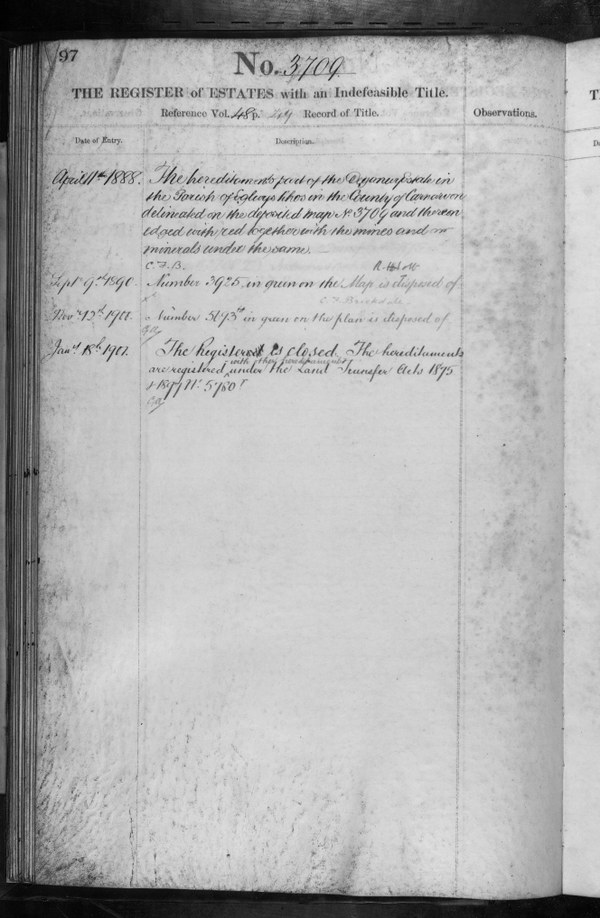 97
No. 3709
THE REGISTER of ESTATES with an Indefeasible Title.
Reference Vol. 48 p. Record of Title.
Observations.
Date of Entry.
Description.
April 11th 1888. The hereditaments part of the Estate in
the Parish of Eglwys Rhos in the County of Carnarvon
delineated on the deposited map No 3709 and thereon
edged with red together with the mines and
minerals under the same.
C.F.B.
Sept 9th 1890. Number 3925 in green on the Map is disposed of
Novr 13th 1901. Number in green on the plan is disposed of
Jany 18th The Register is closed. The hereditaments
are registered with other hereditaments under the Land Transfer Acts 1875
& 1897 No 5780